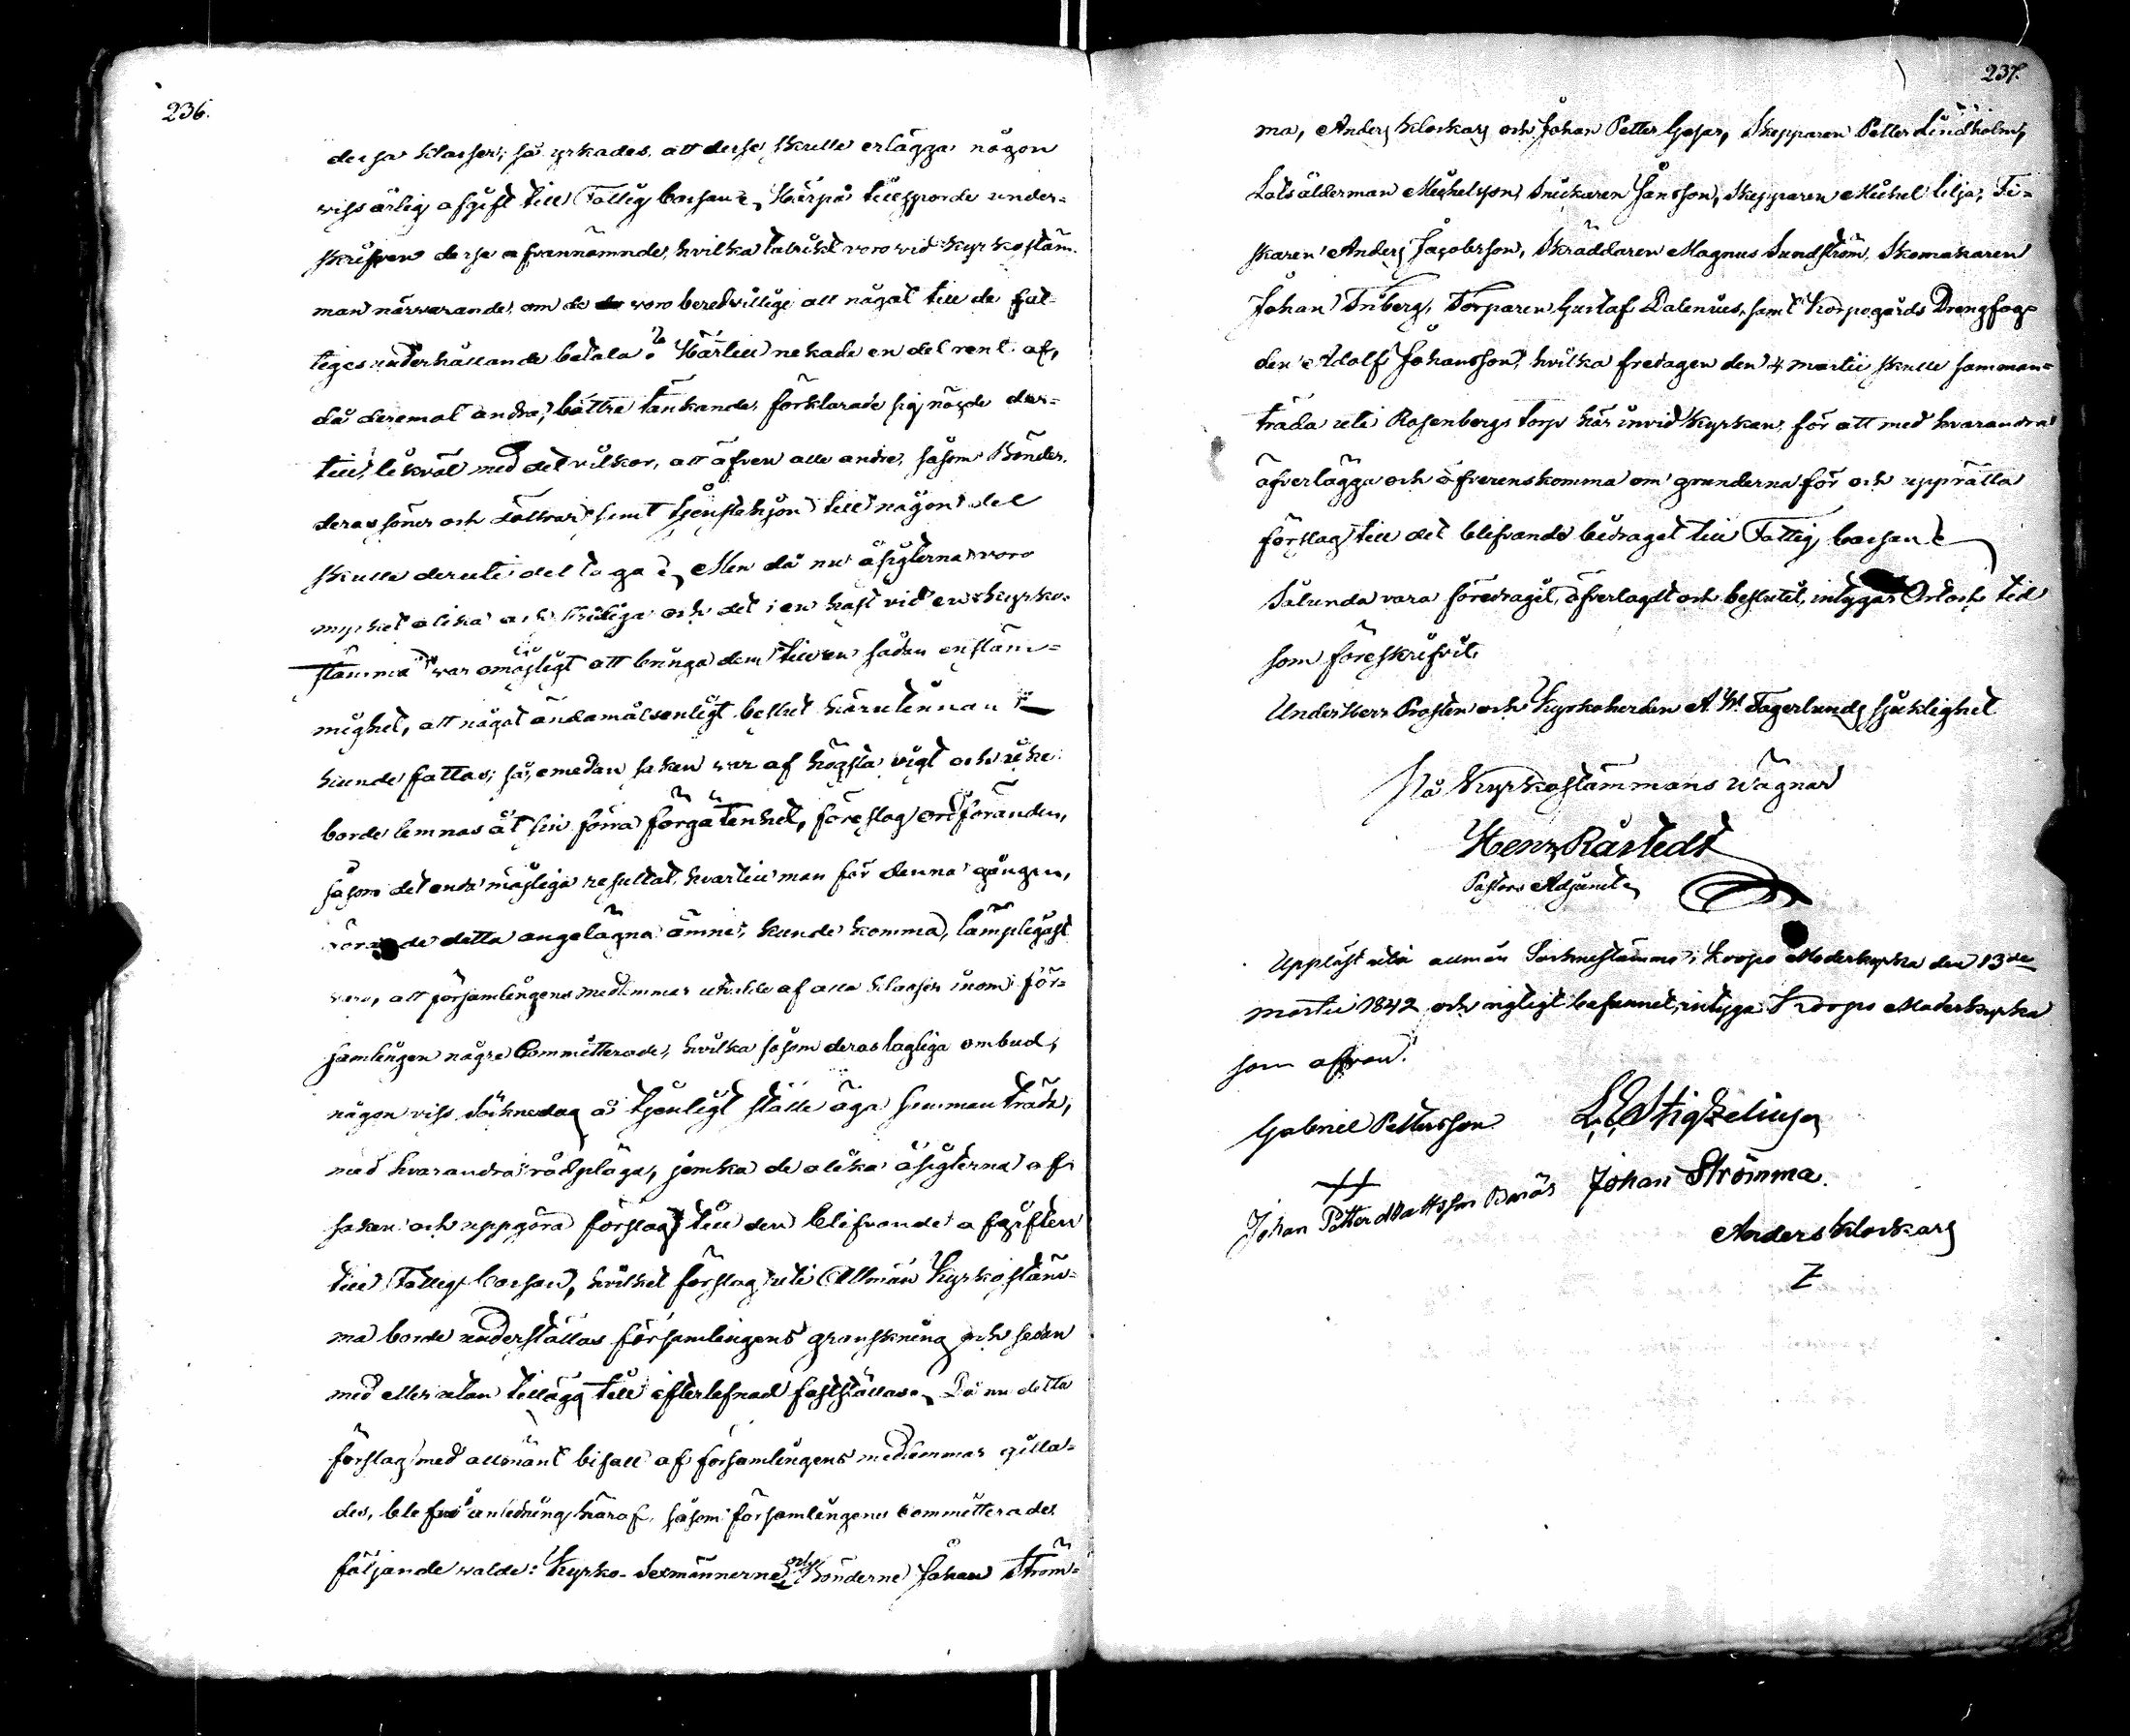 236.
dessa klasser; så yrkades, att desse skulle erlägga någon
viss årlig afgift till Fattig Cassan. Härpå tillsporde under-
skrifven desse ofvannämnde, hvilka talrikt voro vid kyrkostäm
man närvarande, om de voro beredvillige att något till de fat-
tiges underhållande betala? Härtill nekade en del rent af,
då deremot andra, bättre tänkande, förklarade sig nögde der-
till, likväl med det vilkor, att äfven alle andre, såsom Bönder,
deras söner och döttrar samt tjenstehjon till någon del
skulle deruti deltaga. Men då nu åsigterna voro
mycket olika och stridiga och det i en hast vid en kyrko-
stämma var omöjligt att bringa dem till en sådan enstäm-
mighet, att något ändamålsenligt beslut härutinnan
kunde fattas; så, emedan saken var af högsta vigt och icke
borde lemnas åt sin förra förgätenhet, föreslog ordföranden,
såsom det enda möjliga resultat, hvartill man för denna gången,
rörande detta angelägna ämne, kunde komma, lämpligast
vara, att församlingens medlemmar utvalde af alla klasser inom för-
samlingen några Committerade, hvilka såsom deras lagliga ombud,
någon viss Söknedag å tjenligt ställe äga sammanträda,
med hvarandra rådpläga, jemka de olika åsigterna af
saken och uppgöra förslag till den blifvande afgiften
till Fattig Cassan, hvilket förslag uti Allmän Kyrkostäm-
ma borde underställas församlingens granskning och sedan
med eller utan tillägg till efterlefnad fastställas. Då nu detta
förslag med allmänt bifall af församlingens medlemmar gilla-
des, blefvo i anledning häraf, såsom församlingens Committerade
följande valde: Kyrko-Sexmännerne och Bönderne Johan Ström-
237.
ma, Anders Klockars och Johan Petter Gyser, Skepparen Petter Lindholm,
Lotsålderman Michelsson, Snickaren Jansson, Skepparen Michel Lilja, Fi-
skaren Anders Jacobsson, Skräddaren Magnus Sundström, Skomakaren
Johan Friberg, Torparen Gustaf Dalenius, samt Korpogårds Drengfog-
den Adolf Johansson, hvilka fredagen den 4 Martii skulle samman-
träda uti Rosenbergs torp här invid kyrkan, för att med hvarandra
öfverlägga och öfverenskomma om grunderna för och upprätta
förslag till det blifvande bidraget till Fattig Cassan
Sålunda vara föredraget, öfverlagdt och beslutit, intygar Ort och tid
som föreskrifvit.
Under Herr Prosten och Kyrkoherden A. W. Fagerlunds sjuklighet
På Kyrkostämmans vägnar
Henr Råstedt
Pastors Adjunct
Uppläst uti allmän Sockenstämma i Korpo Moderkyrka den 13de
Martii 1842 och rigtigt befunnet, intyga Korpo Moderkyrka
som ofvan.
Gabriel Pettersson
Johan Petter Mattsson
Johan Strömma
Anders Klockars